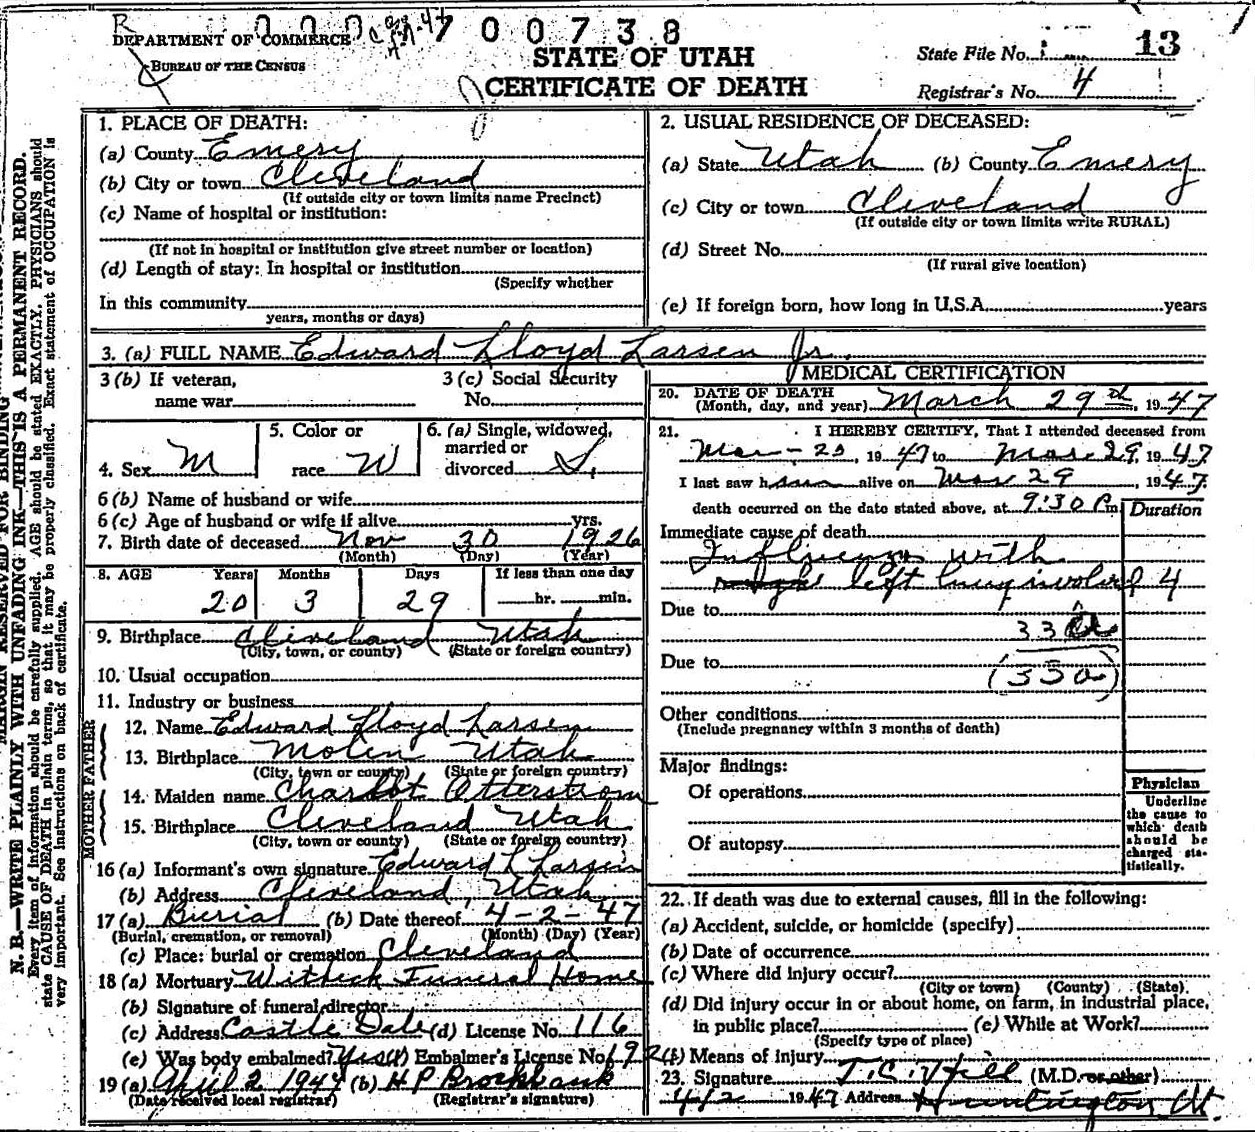 R 000 700738
DEPARTMENT OF COMMERCE
BUREAU OF THE CENSUS
STATE OF UTAH
CERTIFICATE OF DEATH
State File No. 13
Registrar's No. 4
MARGIN RESERVED FOR BINDING
N. B.—WRITE PLAINLY WITH UNFADING INK—THIS IS A PERMANENT RECORD.
Every item of information should be carefully supplied. AGE should be stated EXACTLY. PHYSICIANS should
state CAUSE OF DEATH in plain terms, so that it may be properly classified. Exact statement of OCCUPATION is
very important. See instructions on back of certificate.
1. PLACE OF DEATH:
(a) County Emery
(b) City or town Cleveland
(If outside city or town limits name Precinct)
(c) Name of hospital or institution:
(If not in hospital or institution give street number or location)
(d) Length of stay: In hospital or institution
(Specify whether
In this community
years, months or days)
2. USUAL RESIDENCE OF DECEASED:
(a) State Utah (b) County Emery
(c) City or town Cleveland
(If outside city or town limits write RURAL)
(d) Street No.
(If rural give location)
(e) If foreign born, how long in U.S.A. years
3. (a) FULL NAME Edward Lloyd Larsen Jr.
3 (b) If veteran,
name war
3 (c) Social Security
No.
4. Sex M
5. Color or
race W
6. (a) Single, widowed,
married or
divorced S.
6 (b) Name of husband or wife
6 (c) Age of husband or wife if alive yrs.
7. Birth date of deceased Nov 30 1926
(Month) (Day) (Year)
8. AGE Years Months Days If less than one day
20 3 29 hr. min.
9. Birthplace Cleveland Utah
(City, town, or county) (State or foreign country)
10. Usual occupation
11. Industry or business
FATHER
12. Name Edward Lloyd Larsen
13. Birthplace Molen Utah
(City, town or county) (State or foreign country)
MOTHER
14. Maiden name Charlot Otterstrom
15. Birthplace Cleveland Utah
(City, town or county) (State or foreign country)
16 (a) Informant's own signature Edward L Larsen
(b) Address Cleveland, Utah
17 (a) Burial (b) Date thereof 4-2-47
(Burial, cremation, or removal) (Month) (Day) (Year)
(c) Place: burial or cremation Cleveland
18 (a) Mortuary Funeral Home
(b) Signature of funeral director
(c) Address Castle Dale (d) License No. 116
(e) Was body embalmed? Yes (f) Embalmer's License No. 192
19 (a) April 2 1947 (b) H P Brockbank
(Date received local registrar) (Registrar's signature)
MEDICAL CERTIFICATION
20. DATE OF DEATH
(Month, day, and year) March 29th, 1947
21. I HEREBY CERTIFY, That I attended deceased from
Mar-25, 1947 to Mar 29, 1947
I last saw him alive on Mar 29 1947
death occurred on the date stated above, at 9:30 Pm. Duration
Immediate cause of death
Influenza with
left lung involved 4
Due to
33a
Due to (33a)
Other conditions
(Include pregnancy within 3 months of death)
Major findings:
Of operations
Of autopsy
Physician
Underline
the cause to
which death
should be
charged sta-
tistically.
22. If death was due to external causes, fill in the following:
(a) Accident, suicide, or homicide (specify)
(b) Date of occurrence
(c) Where did injury occur?
(City or town) (County) (State)
(d) Did injury occur in or about home, on farm, in industrial place,
in public place? (e) While at Work?
(Specify type of place)
(f) Means of injury
23. Signature T. C. Hill (M.D. or other)
4/2 1947 Address Huntington Ut.